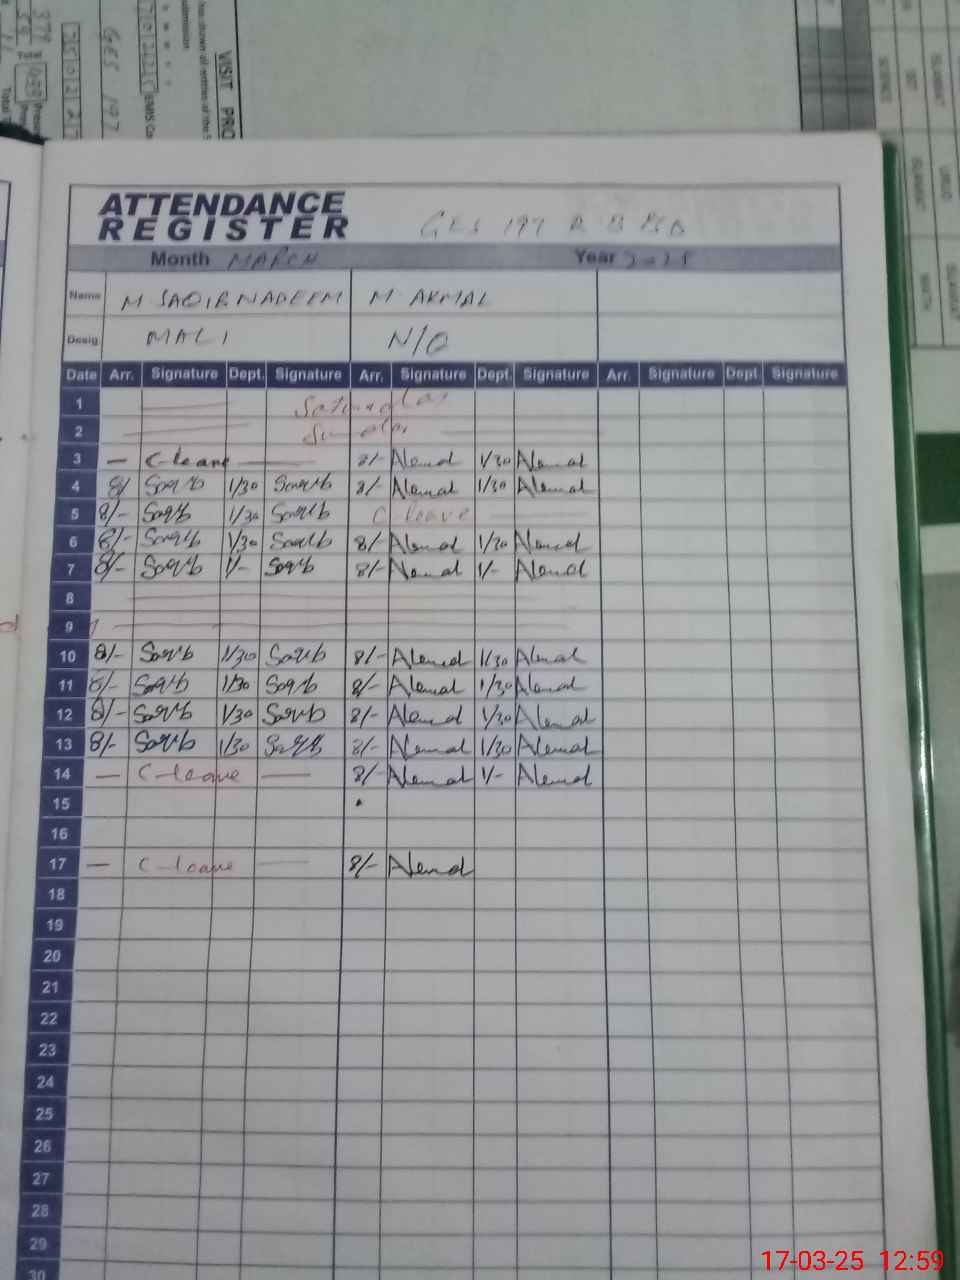 VISIT PRO
GES 197
ATTENDANCE
REGISTER
GES 197 R B
Month MARCH Year 2025
Name M SAQIB NADEEM M AKMAL
Desig. MALI N/Q
Date Arr. Signature Dept. Signature Arr. Signature Dept. Signature Arr. Signature Dept. Signature
1 Saturday
2 Sunday
3 — C-leave 8/- Akmal 1/30 Akmal
4 8/ Saqib 1/30 Saqib 8/- Akmal 1/30 Akmal
5 8/- Saqib 1/30 Saqib C leave
6 8/- Saqib 1/30 Saqib 8/- Akmal 1/30 Akmal
7 8/- Saqib 1/- Saqib 8/- Akmal 1/- Akmal
8
9
10 8/- Saqib 1/30 Saqib 8/- Akmal 1/30 Akmal
11 8/- Saqib 1/30 Saqib 8/- Akmal 1/30 Akmal
12 8/- Saqib 1/30 Saqib 8/- Akmal 1/30 Akmal
13 8/- Saqib 1/30 Saqib 8/- Akmal 1/30 Akmal
14 — C-leave — 8/- Akmal 1/- Akmal
15
16
17 — C-leave — 8/- Akmal
18
19
20
21
22
23
24
25
26
27
28
29
30
17-03-25 12:59